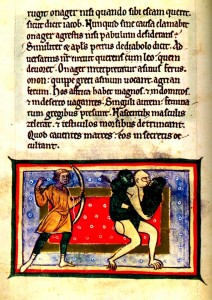 rugit onager nisi quando sibi escam querit
sicut dicit iacob. Nunquid sine causa clamabit
onager agrestis nisi pabulum desiderans.
Similiter & apostolus petrus de diabolo dicit. Ad
versarius noster circuit querens quem
devoret. Onager interpretatur asinus ferus.
onon quippe greci asinum vocant. agrion
ferum. Hos affrica habet magnos. & indomitos
in deserto vagantes. Singuli autem femina
rum gregibus presunt. Nascentibus masculis
zelant. & testiculos morsibus detruncant.
Quod caventes matres. eos in secretis oc
cultant.